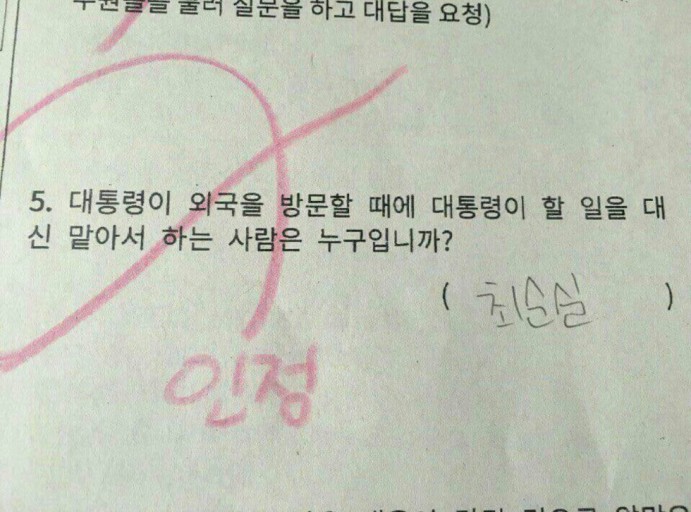 눌러 질문을 하고 대답을 요청)
5. 대통령이 외국을 방문할 때에 대통령이 할 일을 대
신 맡아서 하는 사람은 누구입니까?
( 최순실 )
인정